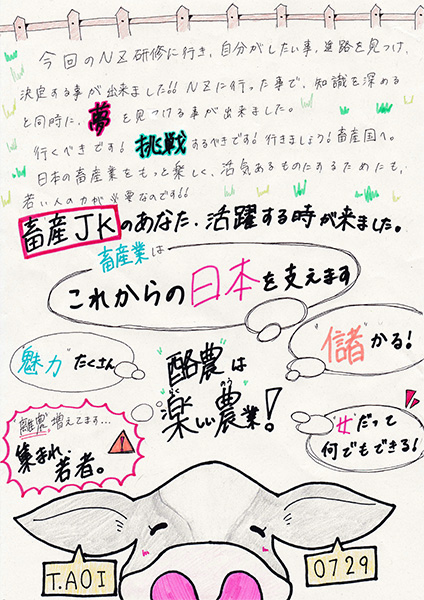 今回のNZ研修に行き、自分がしたい事、進路を見つけ、
決定する事が出来ました!! NZに行った事で、知識を深める
と同時に、夢を見つける事が出来ました。
行くべきです! 挑戦するべきです! 行きましょう! 畜産国へ。
日本の畜産業をもっと楽しく、活気あるものにするためにも、
若い人の力が必要なのです!!
畜産JKのあなた、活躍する時が来ました。
畜産業は
これからの日本を支えます
"魅力"たくさん
酪農は
楽しい農業!
"儲"かる!
離農、増えてます…
集まれ、
若者。
"女"だって
何でもできる!
T.AOI
0729